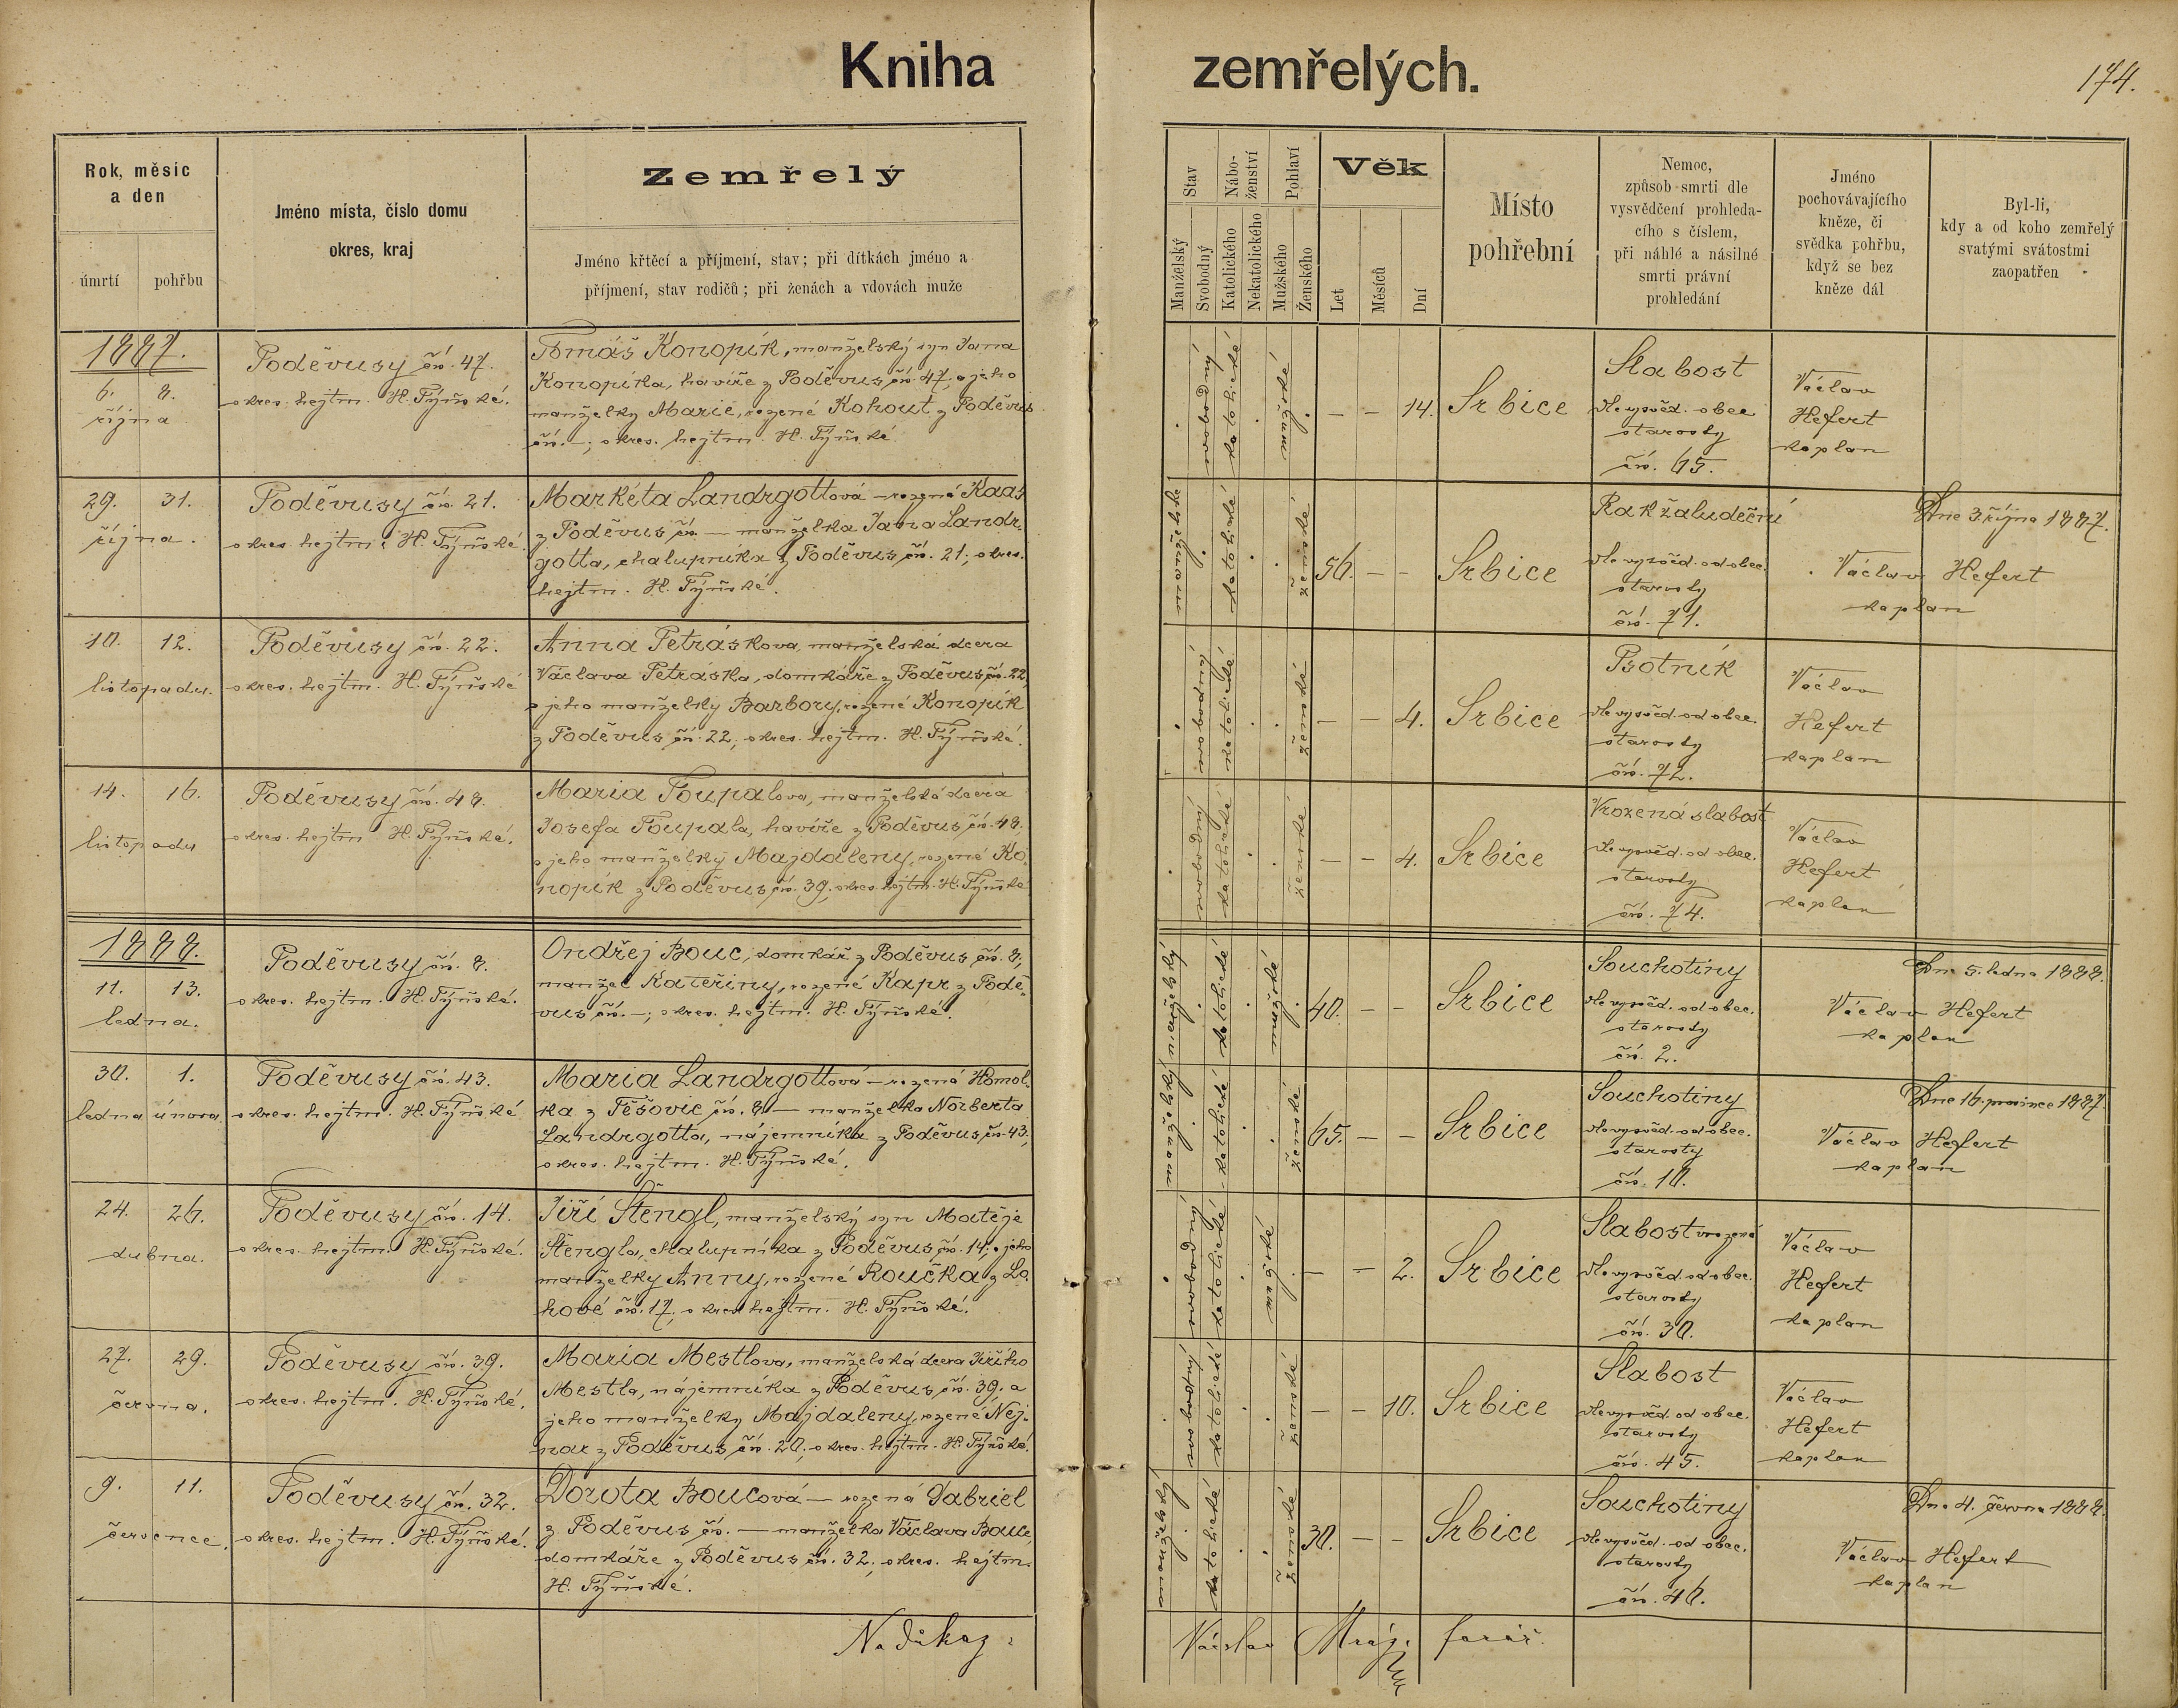 Kniha zemřelých.
174.
Rok, měsíc
a den
úmrtí pohřbu
Jméno místa, číslo domu
okres, kraj
Zemřelý
Jméno křtěcí a příjmení, stav; při dítkách jméno a
příjmení, stav rodičů; při ženách a vdovách muže
Stav
Manželský
Svobodný
Nábo-
ženství
Katolického
Nekatolického
Pohlaví
Mužského
Ženského
Věk
Let
Měsíců
Dní
Místo
pohřební
Nemoc,
způsob smrti dle
vysvědčení prohleda-
cího s číslem,
při náhlé a násilné
smrti právní
prohledání
Jméno
pochovávajícího
kněze, či
svědka pohřbu,
když se bez
kněze dál
Byl-li,
kdy a od koho zemřelý
svatými svátostmi
zaopatřen
1887.
6. 8.
října
Poděvusy čís. 47.
okres. hejtm. H. Týnské.
Tomáš Konopík, manželský syn Jana
Konopíka, havíře z Poděvus čís. 47, a jeho
manželky Marie, rozené Kohout z Poděvus
čís. –; okres. hejtm. H. Týnské.
svobodný
katolické
mužské
– – 14.
Srbice
Slabost
dle vysvěd. obec
starosty
čís. 65.
Václav
Hefert
kaplan
29. 31.
října.
Poděvusy čís. 21.
okres. hejtm. H. Týnské.
Markéta Landrgottová – rozená Kaas
z Poděvus čís. — manželka Jana Landr-
gotta, chalupníka z Poděvus čís. 21; okres.
hejtm. H. Týnské.
katolické
ženské
56. – –
Srbice
Rak žaludeční
dle vysvěd. od obec.
starosty
čís. 71.
Dne 3 října 1887.
Václav Hefert
kaplan
10. 12.
listopadu.
Poděvusy čís. 22.
okres. hejtm. H. Týnské
Anna Petrásková, manželská dcera
Václava Petráska, domkáře z Poděvus čís. 22,
a jeho manželky Barbory, rozené Konopík
z Poděvus čís. 22; okres. hejtm. H. Týnské.
svobodný
katolické
ženské
– – 4.
Srbice
Psotník
dle vysvěd. od obec.
starosty
čís. 72.
Václav
Hefert
kaplan
14. 16.
listopadu
Poděvusy čís. 48.
okres. hejtm. H. Týnské.
Maria Toupalova, manželská dcera
Josefa Toupala, havíře z Poděvus čís. 48,
a jeho manželky Majdaleny, rozené Ko-
nopík z Poděvus čís. 39, okres. hejtm. H. Týnské
svobodný
katolické
ženské
– – 4.
Srbice
Vrozená slabost
dle vysvěd. od obec.
starosty
čís. 74.
Václav
Hefert
kaplan
1888.
11. 13.
ledna.
Poděvusy čís. 8.
okres. hejtm. H. Týnské.
Ondřej Bouc, domkář z Poděvus čís. 8,
manžel Kateřiny, rozené Kapr z Podě-
vus čís. –; okres. hejtm. H. Týnské.
manželský
katolické
mužské
40. – –
Srbice
Souchotiny
dle vysvěd. od obec.
starosty
čís. 2.
Dne 5. ledna 1888.
Václav Hefert
kaplan
30. 1.
ledna února
Poděvusy čís. 43.
okres. hejtm. H. Týnské
Maria Landrgottová – rozená Homol-
ka z Těšovic čís. 8 — manželka Norberta
Landrgotta, nájemníka z Poděvus čís. 43,
okres. hejtm. H. Týnské.
manželský
katolické
ženské
65. – –
Srbice
Souchotiny
dle vysvěd. od obec.
starosty
čís. 10.
Dne 16. prosince 1887.
Václav Hefert
kaplan
24. 26.
dubna.
Poděvusy čís. 14.
okres. hejtm. H. Týnské.
Jiří Štengl, manželský syn Matěje
Štengla, chalupníka z Poděvus čís. 14, a jeho
manželky Anny, rozené Roučka z
čís. 17, okres. hejtm. H. Týnské.
svobodný
katolické
mužské
– – 2.
Srbice
Slabost vrozená
dle vysvěd. od obec.
starosty
čís. 30.
Václav
Hefert
kaplan
27. 29.
června.
Poděvusy čís. 39.
okres. hejtm. H. Týnské.
Maria Mestlova, manželská dcera Jiřího
Mestla, nájemníka z Poděvus čís. 39, a
jeho manželky Majdaleny, rozené Nej-
nar z Poděvus čís. 20; okres. hejtm. H. Týnské.
svobodný
katolické
ženské
– – 10.
Srbice
Slabost
dle vysvěd. od obec.
starosty
čís. 45.
Václav
Hefert
kaplan
9. 11.
července.
Poděvusy čís. 32.
okres. hejtm. H. Týnské.
Dorota Boucová — rozená Gabriel
z Poděvus čís. — manželka Václava Bouce,
domkáře z Poděvus čís. 32, okres. hejtm.
H. Týnské.
manželský
katolické
ženské
30. – –
Srbice
Souchotiny
dle vysvěd. od obec.
starosty
čís. 46.
Dne 4. června 1888.
Václav Hefert
kaplan
Na důkaz:
Václav Mráz, farář.